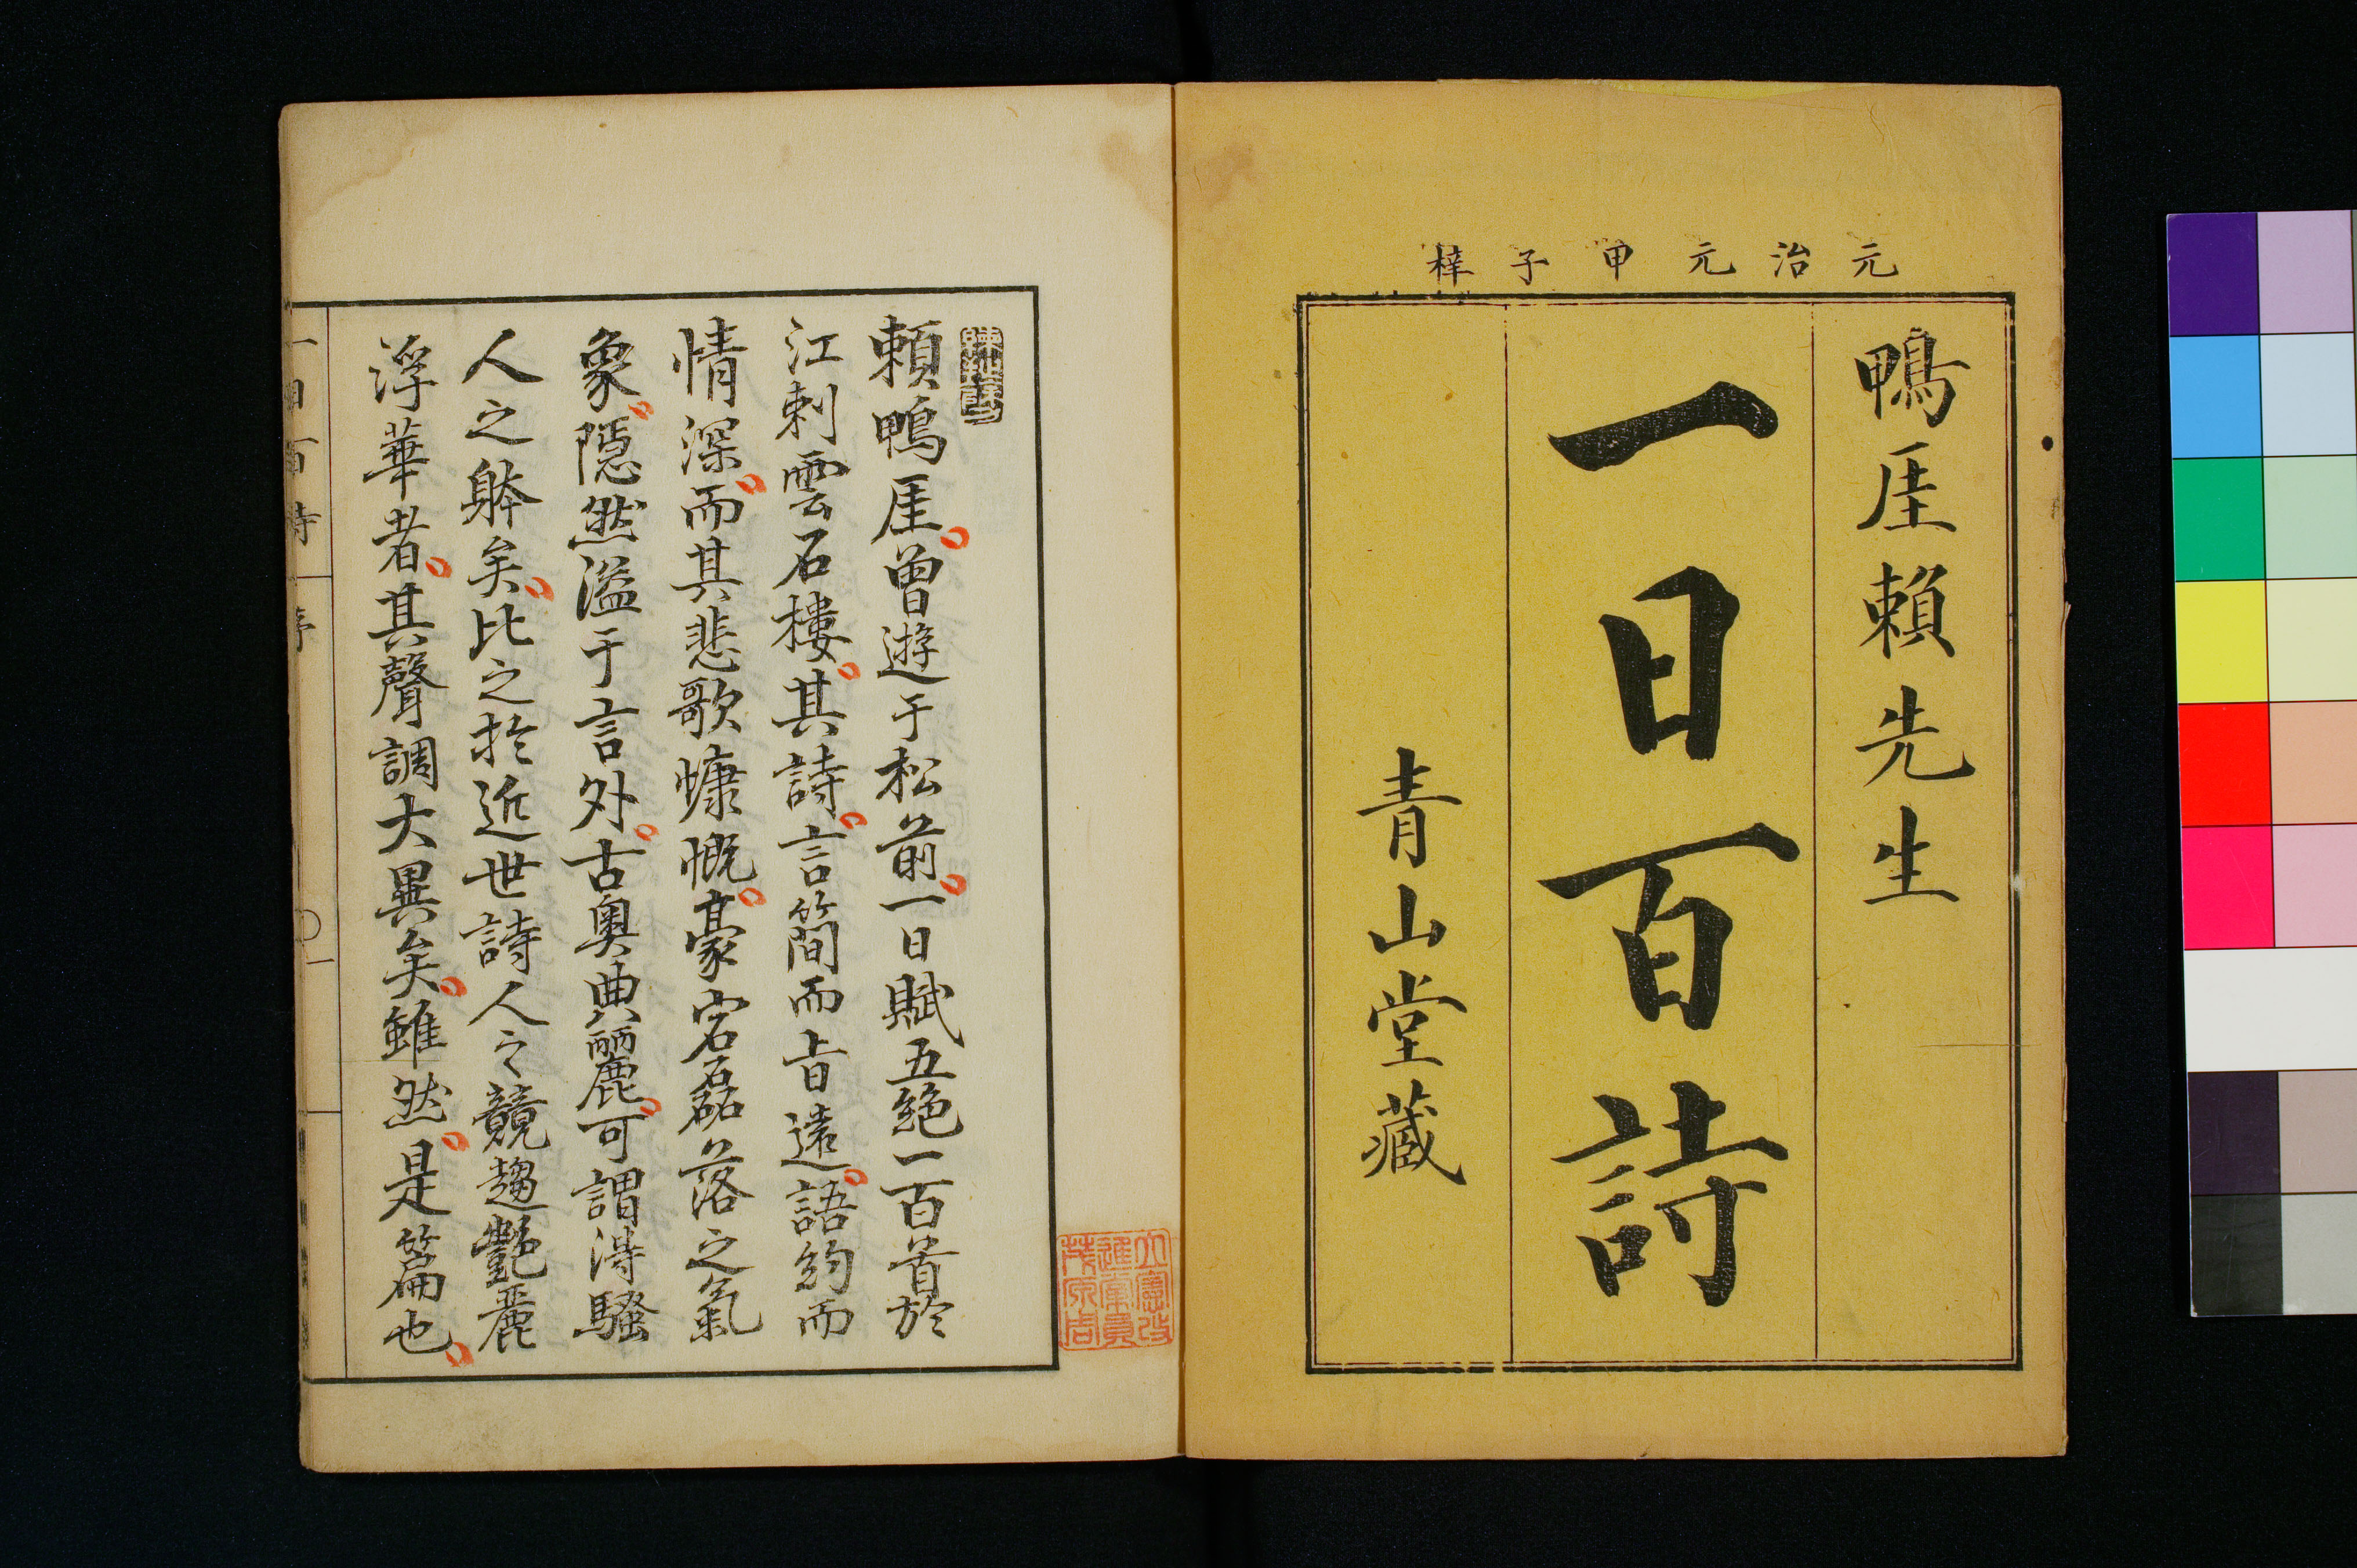 元治元甲子梓
鴨厓賴先生
一日百詩
青山堂藏
賴鴨厓。曾遊于松前。一日賦五絶一百首於
江刺雲石樓。其詩。言簡而旨遠。語約而
情深。而其悲歌慷慨。豪宕磊落之氣
象。隱然溢于言外。古奧典麗。可謂得騷
人之躰矣。比之於近世詩人之競趨艷麗
浮華者。其聲調大異矣。雖然。是篇也。
一日百詩 序 一